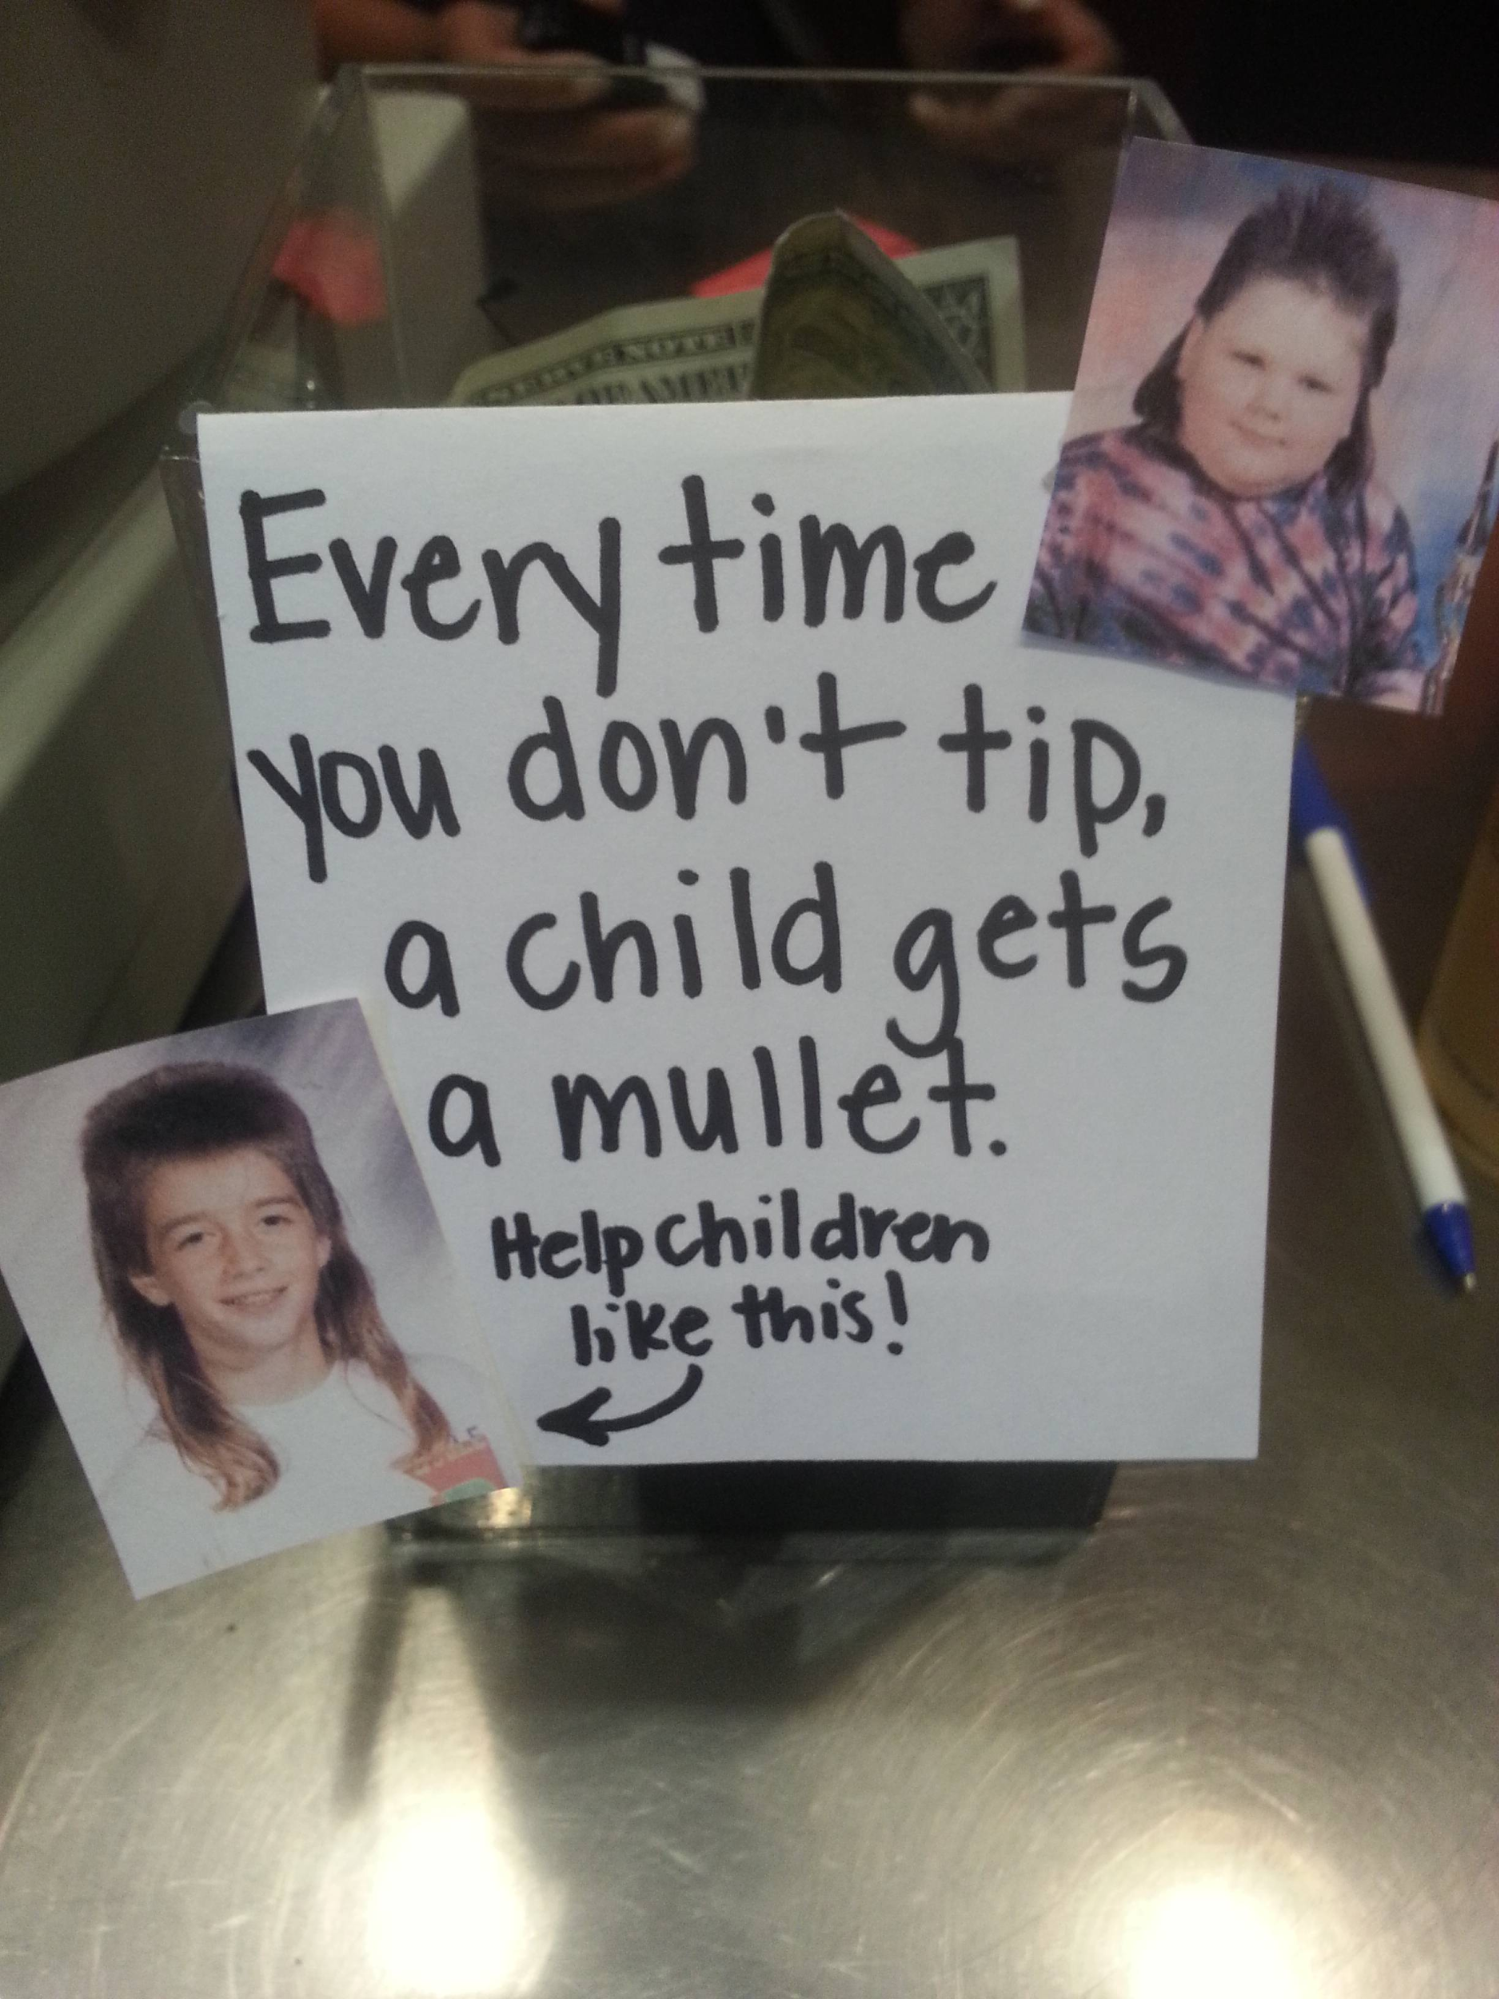 Every time
you don't tip,
a child gets
a mullet.
Help children
like this!